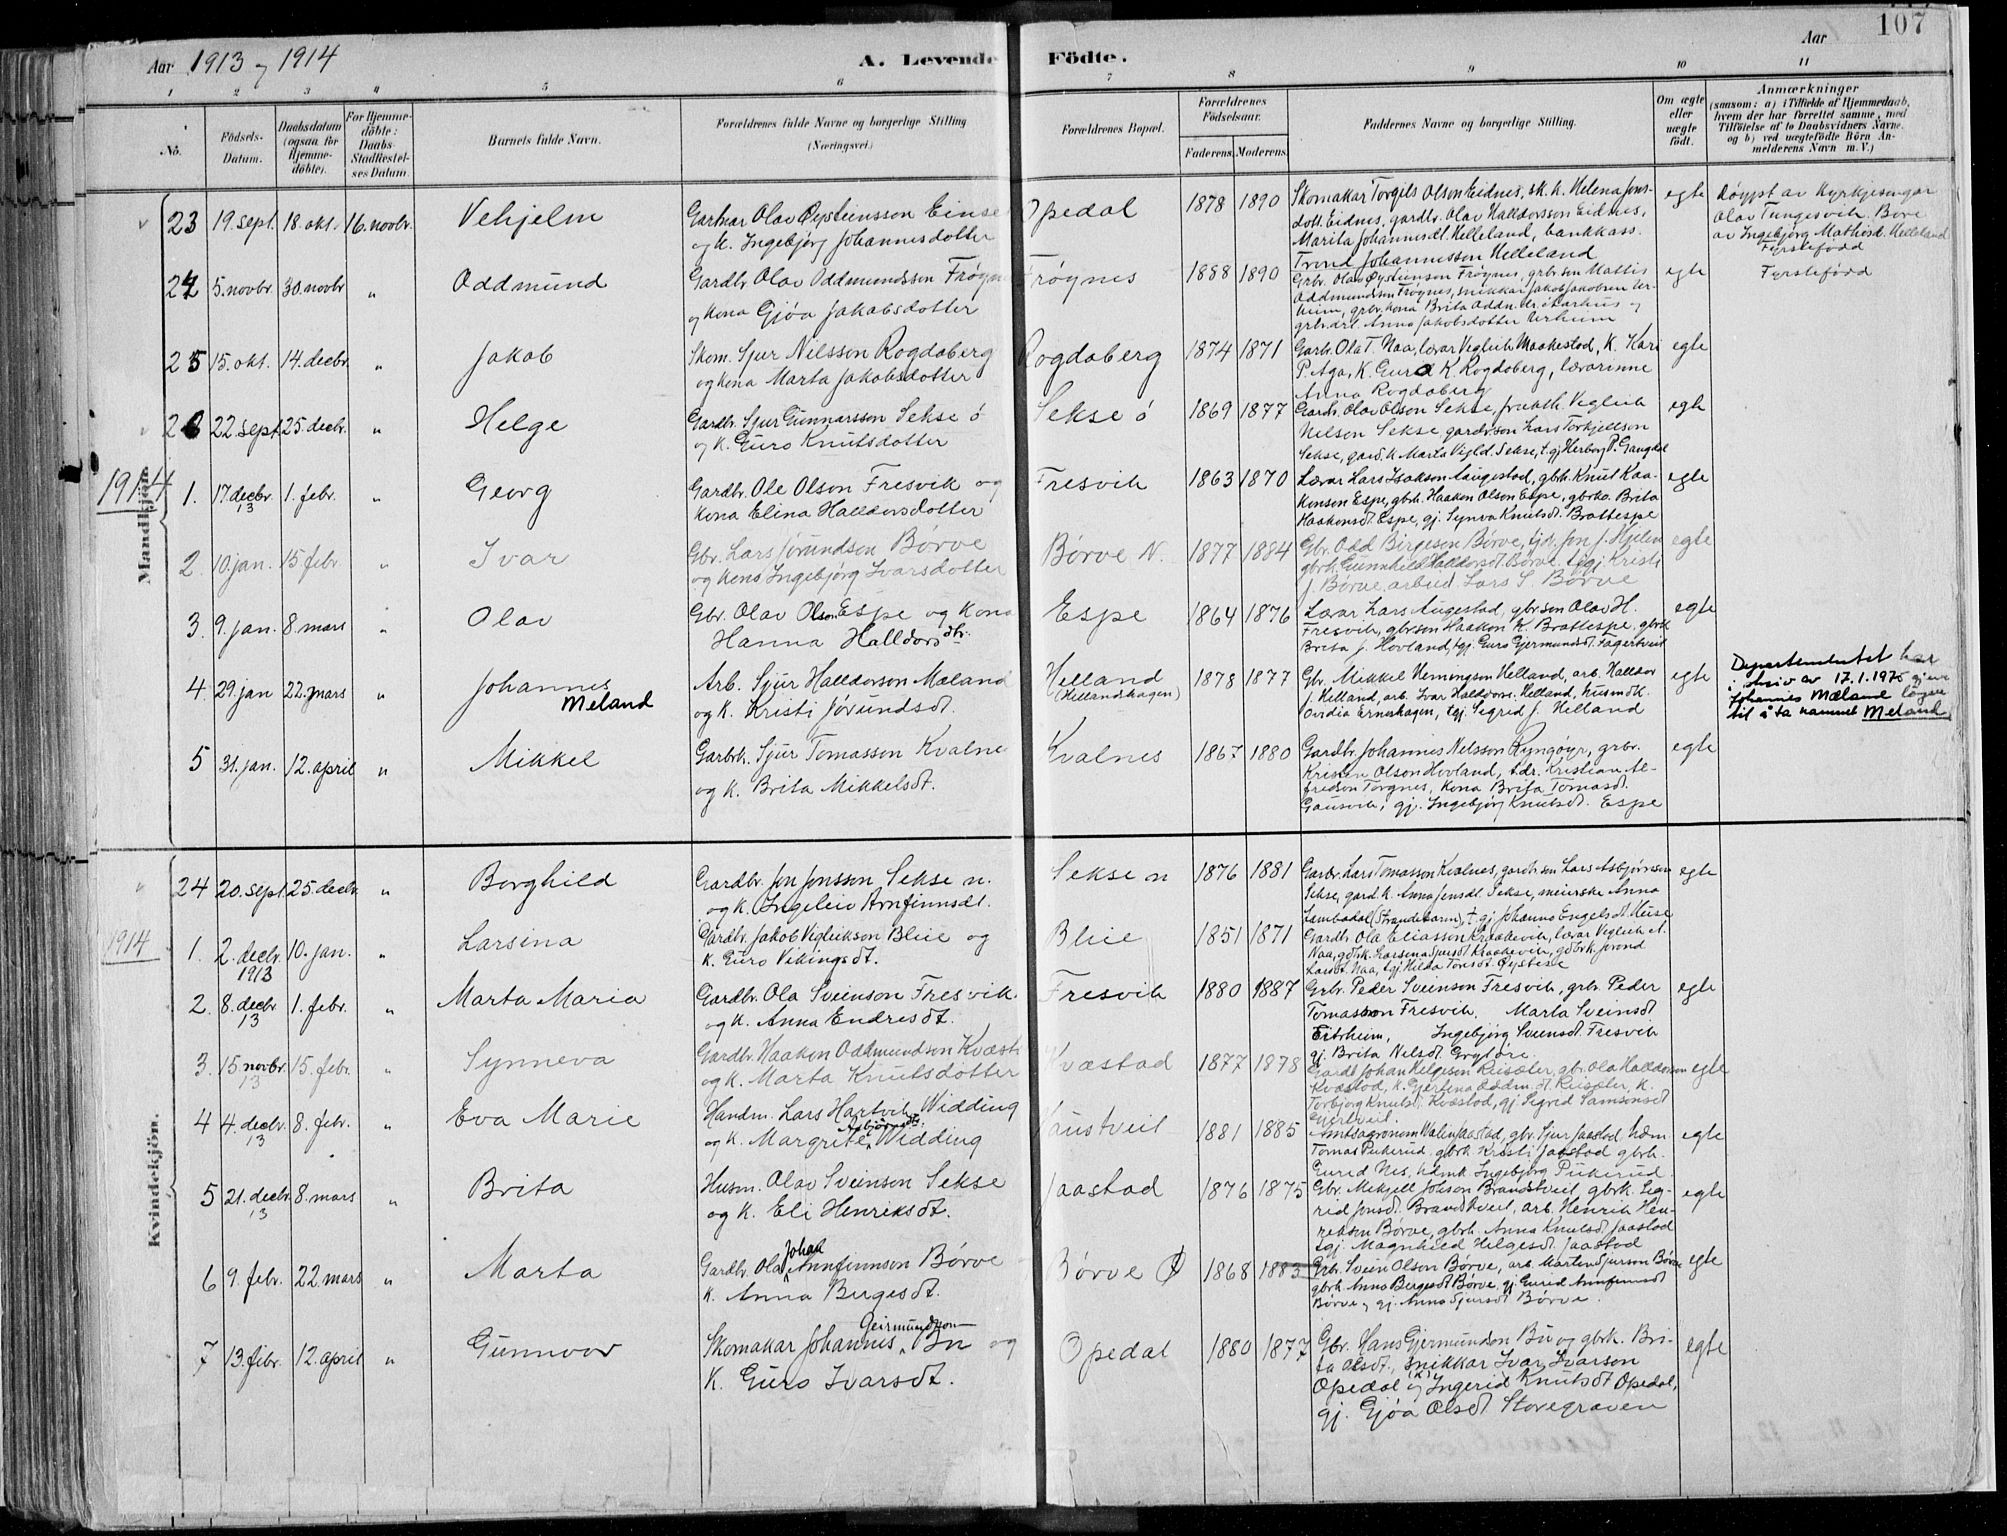 107
Aar 1913 og 1914 A. Levende Födte. Aar
1 2 3 4 5 6 7 8 9 10 11
No.
Födsels-Datum.
Daabsdatum (ogsaa for Hjemme-döbte).
For Hjemme-döbte: Daabs-Stadfæstel-ses Datum.
Barnets fulde Navn.
Forældrenes fulde Navne og borgerlige Stilling (Næringsvei.)
Forældrenes Bopæl.
Forældrenes Födselsaar.
Faderens. Moderens.
Faddernes Navne og borgerlige Stilling.
Om ægte eller uægte födt.
Anmærkninger
(saasom: a) i Tilfælde af Hjemmedaab,
hvem der har forrettet samme, med
Tilföielse af to Daabsvidners Navne.
og b) ved uægtefödte Börn An-
melderens Navn m. V.)
Mandkjön.
23 19. sept. 18. okt. 16. novbr. Vehjelm
Gartnar Olav Øysteinsson Einse
og k. Ingebjørg Johannesdotter
Opedal 1878 1890
Skomakar Torgils Olson Eidnes, sk. k. Helena Jons-
dott. Eidnes, gardbr. Olav Halldorsson Eidnes,
Marita Johannesdt. Helleland, bankkass.
Trond Johannesson Helleland
egte
Døypt av kyrkjesongar
Olav Tungesvik. Bore
av Ingebjørg Mathisd. Helleland
Fyrstefödd
24 5. novbr 30. novbr " Oddmund
Gardbr. Olav Oddmundsson Frøgne
og kona Gjøa Jakobsdotter
Frøgnes 1888 1890
Grbr. Olav Øysteinson Frøgnes, grbr.son Mattis
Oddmundsen Frøgnes, snikkar Jakob Jakobsen Ur-
heim, grbr. kona Brita Oddm. dr. Aarhus og
grbr.dtr. Anna Jakobsdotter Urheim
egte Fyrstefödd
25 15. okt. 14. decbr. " Jakob
Skom. Sjur Nilsson Rogdaberg
og kona Marta Jakobsdotter
Rogdaberg 1874 1871
Garb. Ola T. Naa, lærar Vegleik Maakestad, K. Kari
P. Aga, K. Guro K. Rogdaberg, lærarinne
Anna Rogdaberg
egte
26 22. sept. 25. decbr. " Helge
Gardbr. Sjur Gunnarsson Sekse ö
og k. Guro Knutsdotter
Sekse ö 1869 1877
Gardb. Olav Olson Sekse, Vegleik
Nilson Sekse, gardb.son Lars Torkjellson
Sekse, gard. k. Marta Vigld. Sekse, t. gj. Herborg P. Gangdal
egte
1914
1. 17. decbr 13 1. febr. " Georg
Gardbr. Ole Olson Fresvik og
kona Elina Halldorsdotter
Fresvik 1863 1870
Lærar Lars Isakson Augestad, gbrk. Knut Haa-
konson Espe, gbrk. Haakon Olson Espe, gbrko. Brita
Haakonsdt. Espe, gj. Synva Knutsdt. Brattespe
egte
2. 10. jan. 15. febr " Ivar
Gbr. Lars Jørundson Børve
og kona Ingebjørg Ivarsdotter
Børve N. 1877 1884
Gbr. Odd Birgeson Børve, Jon J. Hjelen
gbrk. Gunnhild Halldorsdt. Børve. tgj. Kristi
J. Børve, arbud. Lars S. Børve
egte
3. 9. jan. 8. mars " Olav
Gbr. Olav Olson Espe og kona
Hanna Halldorsdtr.
Espe 1864 1876
Lærar Lars Augestad, gbr. son Olav H.
Fresvik, gbrson Haakon K. Brattespe. gbrk
Brita J. Hovland, tgj. Guro Gjermundsdt. Fagertveit
egte
4. 29. jan 22. mars " Johannes
Meland
Arb. Sjur Halldorson Mæland
og k. Kristi Jørundsdt.
Helland
(Hellandhagen)
1878 1877
Gbr. Mikkel Hemingson Helland, arb. Halldor
J. Helland, arb. Ivar Halldors. Helland, husmdk.
Ovidia Erneshagen, tgj. Segrid J. Helland
egte
Departementet har
i skriv av 17.1.1975
Johannes Mæland
til å ta namnet Meland
5 31. jan. 12. april " Mikkel
Garbrk. Sjur Tomasson Kvalne
og k. Brita Mikkelsdt.
Kvalnes 1867 1880
Gardbr. Johannes Nilsson Ryngøyr, grbr.
Kristen Olson Hovland, t.dr. Kristian Al-
fredson Torgnes, kona Brita Tomasdt.
Gausvik, gj. Ingebjørg Knutsdt. Espe
egte
Kvindekjön.
24 20. sept. 25. decbr. " Borghild
Gardbr. Jon Jonsson Sekse n.
og k. Ingeleiv Arnfinnsdt.
Sekse n 1876 1881
Garbr. Lars Tomasson Kvalnes, gardb. son Lars Asbjørnson
Sekse, gard k. Anna Jonsdt. Sekse, meierske Anna
Sambadal (Strandebarm), t. gj. Johanna Engelsdt. Huse
egte
1914
1. 2. decbr. 1913 10. jan. " Larsina
Gardbr. Jakob Vegleikson Bleie og
k. Guro Vikingsdt.
Bleie 1851 1871
Gardbr. Ola Eliasson Kraakevik, lærar Vegleik A.
Naa, gdbrk. Larsina Sjursdt Kraakevik, gdbrk. Jorond
Larsdt. Naa, tgj. Hilda Tomsdt. Øystese
egte
2. 8. decbr 13 1. febr. " Marta Maria
Gardbr. Ola Sveinson Fresvik.
og k. Anna Endresdt.
Fresvik 1880 1887
Grbr. Peder Sveinson Fresvik, grbr. Peder
Tomasson Fresvik. Marta Sveinsdt.
Eitrheim, Ingebjørg Sveinsdt. Fresvik
gj. Brita Nilsdt. Grytøre.
egte
3. 15. novbr. 13 15. febr. " Synneva
Gardbr. Haakon Oddmundson Kvæst
og k. Marta Knutsdotter
Kvæstad 1877 1878
Gardb Johan Helgeson Reisæter, gbr. Ola Halldorson
Kvæstad, k. Gjertina Oddm. dt. Reisæter, k.
Torbjørg Knutsdt. Kvæstad, gj. Segrid Samsonsdt
egte
4 4. decbr. 13 8. febr. " Eva Marie
Handm. Lars Hartvik Widding
og k. Margrite Asbjørnsdtr. Widding
Naustveit 1881 1885
Amtsagronom Jaastad, gbr. Sjur Jaastad, hdm
Tomas Pukerud, gbrk. Kristi Jaastad gbrk.
Gurid Nes, hdmk. Ingebjørg Pukerud.
egte
5 21. decbr. 13 8. mars " Brita
Husm. Olav Sveinson Sekse
og k. Eli Henriksdt.
Jaastad 1876 1875
Gbr. Mikjell Johson Brandstveit, gbrk. Seg-
rid Jonsdt. Brandstveit, arb. Henrik Hen-
rikson Børve, gbrk. Anna Knutsdt. Jaastad
tgj. Magnhild Helgesdt. Jaastad
egte
6 9. febr. 22. mars " Marta
Gardbr. Ola Johan Annfinnson Børve
k. Anna Birgesdt.
Børve Ø 1868 1883
Grbr. Svein Olson Børve, arb. Marten Sjurson Børve
gbrk. Anna Bergesdt Børve, gj. Gurid Annfinnsdt
Børve, gj. Anna Sjursdt Børve.
egte
7 13. febr. 12. april " Gunnvor
Skomakar Johannes Geirmundson Bu og
K. Guro Ivarsdt.
Opedal 1880 1877
Gbr. Hans Gjermundson Bu og gbrk. Bri-
ta Olsdt., snikkar Ivar Ivarson
Opedal og (K) Ingerid Knutsdt Opedal,
gj. Gjøa Olsdt Storegraven
egte